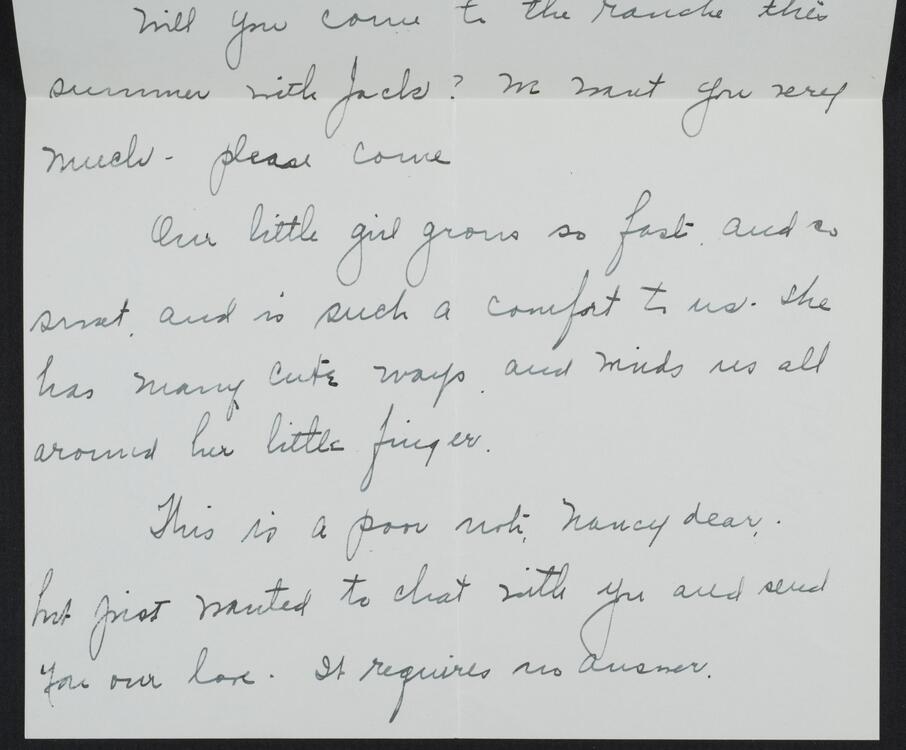 Will you come to the ranche this
summer with Jack? We want you very
much - please come
Our little girl grows so fast, and so
smart, and is such a comfort to us. She
has many cute ways, and winds us all
around her little finger.
This is a poor note, Nancy dear,.
but just wanted to chat with you and send
you our love. It requires no answer.